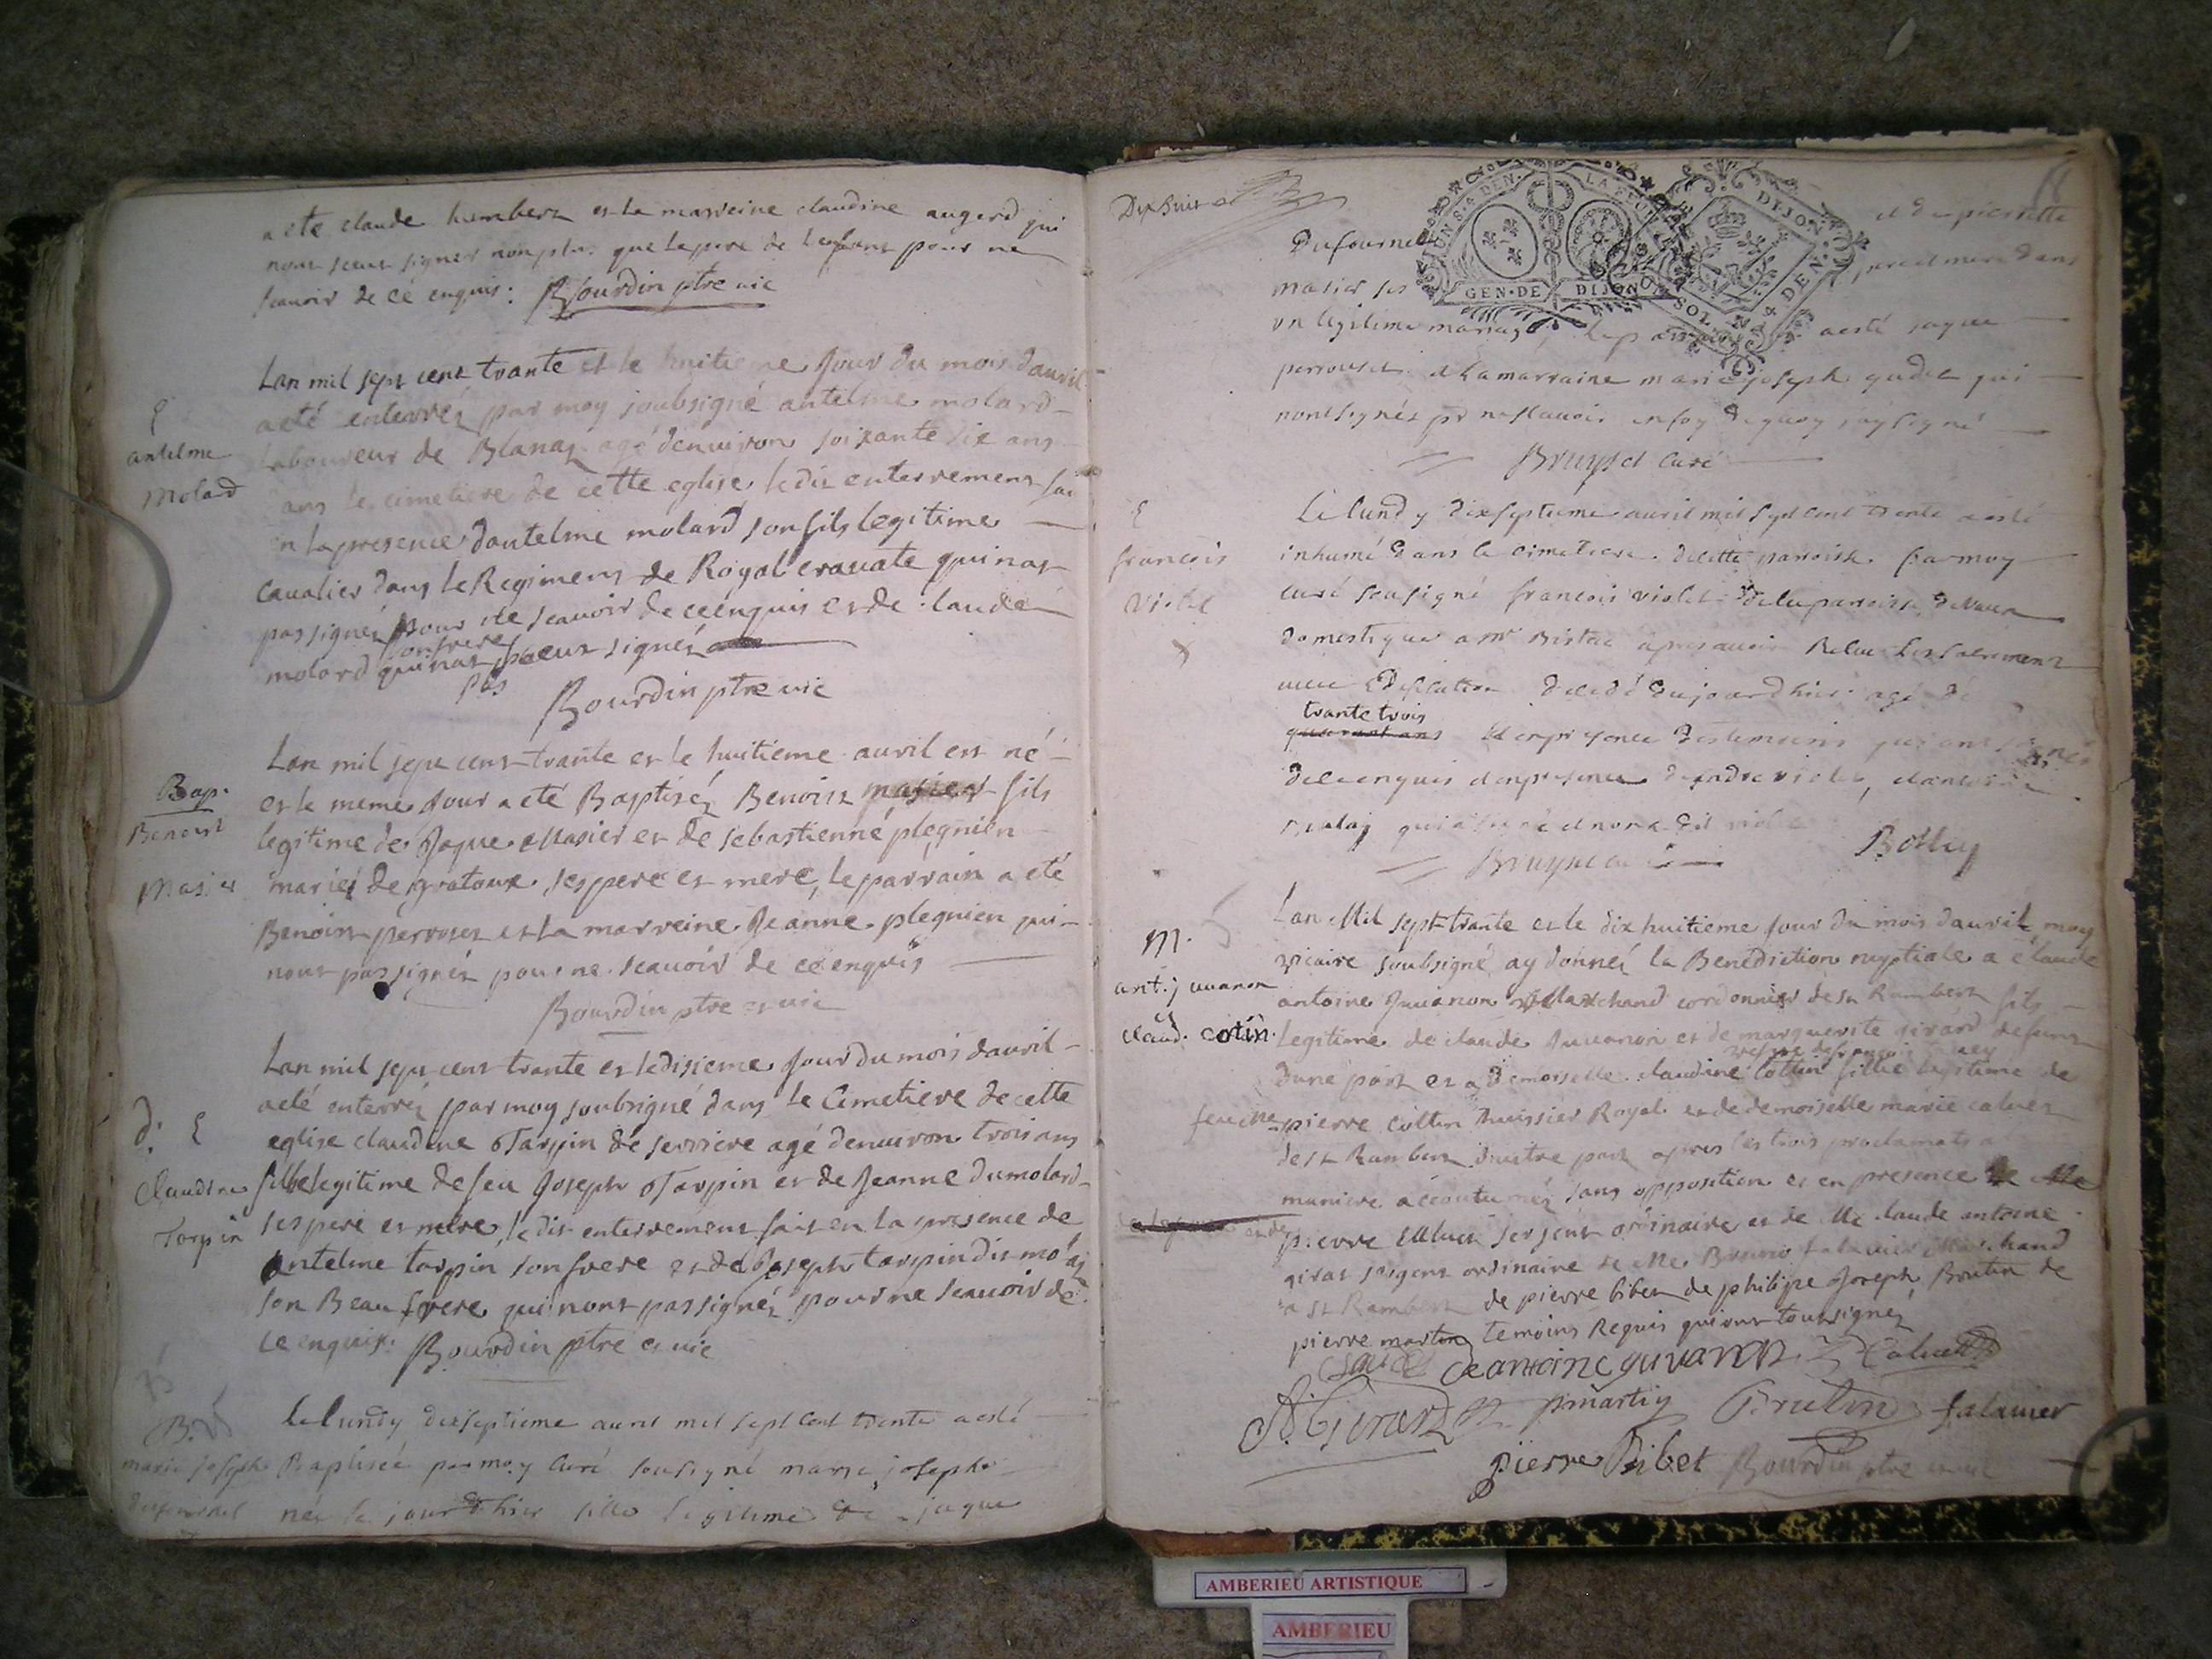 a eté claude humbert et la marreine claudine augerd qui
nont sceut signer non plus que le pere de lenfant pour ne
scauoir de ce enquis. Bourdin ptre vic
Lan mil sept cent trante et le huitieme Jour du mois dauril
a eté enterréz par moy soubsigné antelme molard
laboureur de Blanaz agé denuiron soixante dix ans
dans le cimetiere de cette eglise le dit enterrement fai
en la presence dantelme molard son fils legitime
caualier dans le Regiment de Royal crauate qui na
pas signéz pour ne scauoir de ce enquis et de claude
molard son frere qui na pas sceut signéz
Bourdin ptre vic
E
antelme
Molard
Lan mil sept cent trante et le huitieme auril est né
et le meme Jour a eté Baptiséz Benoist masier fils
legitime de Jaque Masier et de sebastienne plegnien
mariéz de gratoux ses pere et mere, le parrain a eté
Benoist perroset et la marreine Jeanne plegnien qui
nont pas signéz pour ne scauoir de ce enquis
Bourdin ptre et vic
Bap.
Benoist
Masier
Lan mil sept cent trante et le disieme Jour du mois dauril
a eté enterréz par moy soubsigné dans le Cimetiere de cette
eglise claudine Tarpin de serriere agé denuiron trois ans
fille legitime de feu Joseph Tarpin et de Jeanne dumolard
ses pere et mere, le dit enterrement fait en la presence de
antelme tarpin son frere et de Joseph tarpin dit
son Beau frere qui nont pas signéz pour ne scauoir de
ce enquis. Bourdin ptre et vic
d. E
Claudine
Tarpin
Le lundy dixseptieme auril mil sept cent trente a esté
Baptisée par moy curé sousigné marie josephe
née le jour dhier fille legitime de jaque
B.
marie josephe
dufournel
Dix huit
Dufournel et de pierrette
masier ses pere et mere dans
un legitime mariage, le parrain a esté jaque
perrouset et la marraine marie joseph qui
nont signés pr ne scauoir en foy de quoy jay signé
Bruyset curé
E
francois
violet
Le lundy dixseptieme auril mil sept cent trente a esté
inhumé dans le cimetiere de cette parroisse par moy
curé sousigné francois violet de la parroisse de vaux
domestique a mr apres auoir Receu les sacrements
auec Edification decedé du jourdhier agé de
trante trois
quarant ans et en presence des temoins qui ont signés
de ce enquis et en presence de violet, et antoine
qui a signé et non le dit violet
Bruyset curé Bottey
M.
ant. juuanon
claud. cotin.
Lan Mil sept trante et le dix huitieme Jour du mois dauril moy
vicaire soubsigné ay donnéz la Benediction nuptiale a claude
antoine Juuanon Marchand cordonnier de st Rambert fils
legitime de claude Juuanon et de marguerite girard defunt
dune part et a Demoiselle claudine Cottin fille legitime de
feu Me pierre cottin huissier Royal et de demoiselle marie caluet
de st Rambert dautre part apres les trois proclamats a
maniere accoutuméz sans opposition et en presence de Me
pierre sergent ordinaire et de Me claude antoine
girar sergent ordinaire de Me Bruno falauier Marchand
a st Rambert de pierre bibet de philipe Joseph Brutin de
pierre martin temoins Requis qui ont tous signéz
Cl antoine guvanon Caluet
Girard pmartin Brutin falauier
pierre Bibet Bourdin ptre et vic
GEN·DE DIJON
DIJON
AMBERIEU ARTISTIQUE
AMBERIEU